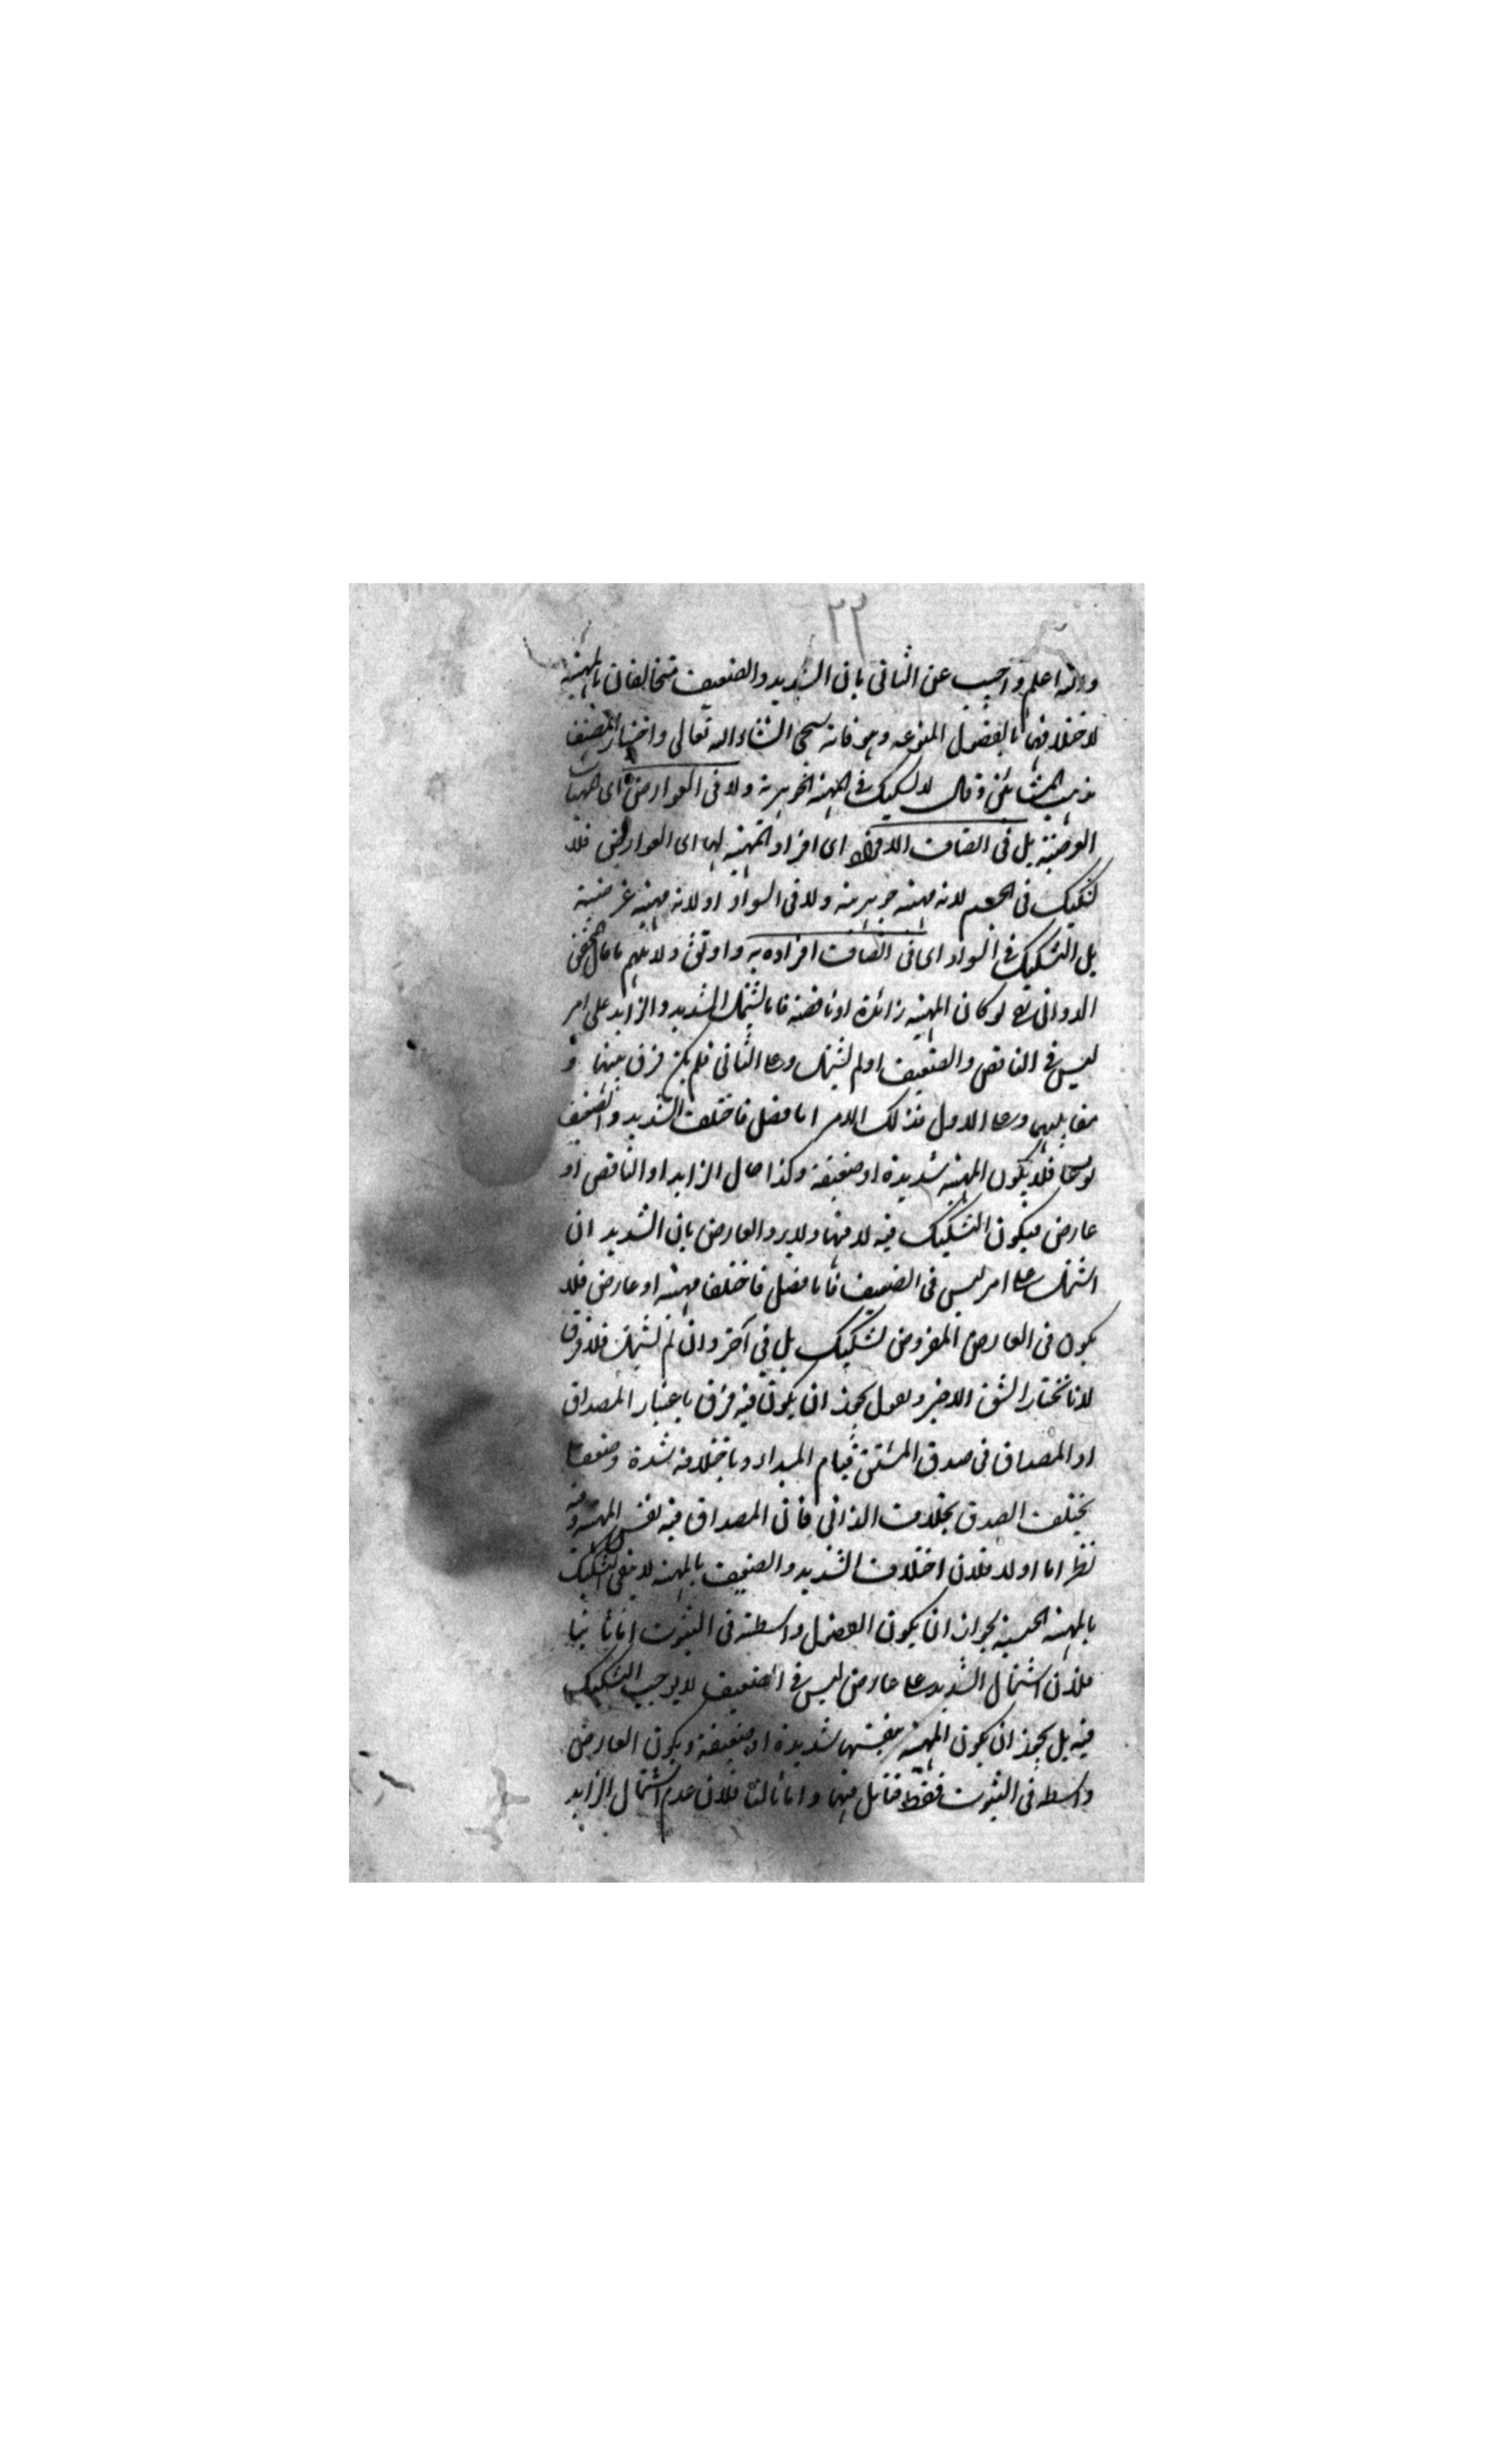 ٢٢
والله اعلم واجيب عن الثانى بان الشديد والضعيف متخالفان بالمهية
لاختلافهما بالفصول المنوعه وهو فانه سيجى انشاء الله تعالى واختار المصنف
مذهب المشائين وقال لا تشكيك فى المهية الجوهرية ولا فى العوارض اى المهيات
العرضية بل فى اتصاف الافراد اى افراد المهية بها اى العوارض فلا
تشكيك فى الجسم لانه مهية جوهرية ولا فى السواد اذ لانه مهية عرضية
بل التشكيك فى السواد اى فى اتصاف افراده به واوثق دلائلهم ما قال المحقق
الدوانى لو كان المهية زائدة او ناقصة فاما يشتمل الشديد والزايد على امر
ليس فى الناقص والضعيف او لم يشتمل وعلى الثانى فلم يكن فرق بينهما و
مقابليهما وعلى الاول فذلك الامر اما فصل فاختلف الشديد والضعيف
نوعا فلا يكون المهية شديدة او ضعيفة وكذا حال الزايد او الناقص او
عارض فيكون التشكيك فيه لا فيها ولا يرد العارض بان الشديد ان
اشتمل على امر ليس فى الضعيف فاما فصل فاختلفا مهية او عارض فلا
يكون فى العارض المفروض تشكيك بل فى آخر وان لم يشتمل فلا فرق
لانا نختار الشق الاخير ونقول يجوز ان يكون فيه فرق باعتبار المصداق
اذ المصداق فى صدق المشتق قيام المبداء وباختلافه شدة وضعفا
يختلف الصدق بخلاف الذاتى فان المصداق فيه نفس المهية وفيه
نظر اما اولا فلان اختلاف الشديد والضعيف بالمهية لا ينفى التشكيك
بالمهية الجنسية لجواز ان يكون الفصل واسطة فى الثبوت اما ثانيا
فلان اشتمال الشديد على عارض ليس فى الضعيف لا يوجب التشكيك
فيه بل يجوز ان يكون المهية بنفسها شديدة او ضعيفة ويكون العارض
واسطه فى الثبوت فقط فتامل فيها واما ثالثا فلان عدم اشتمال الزايد